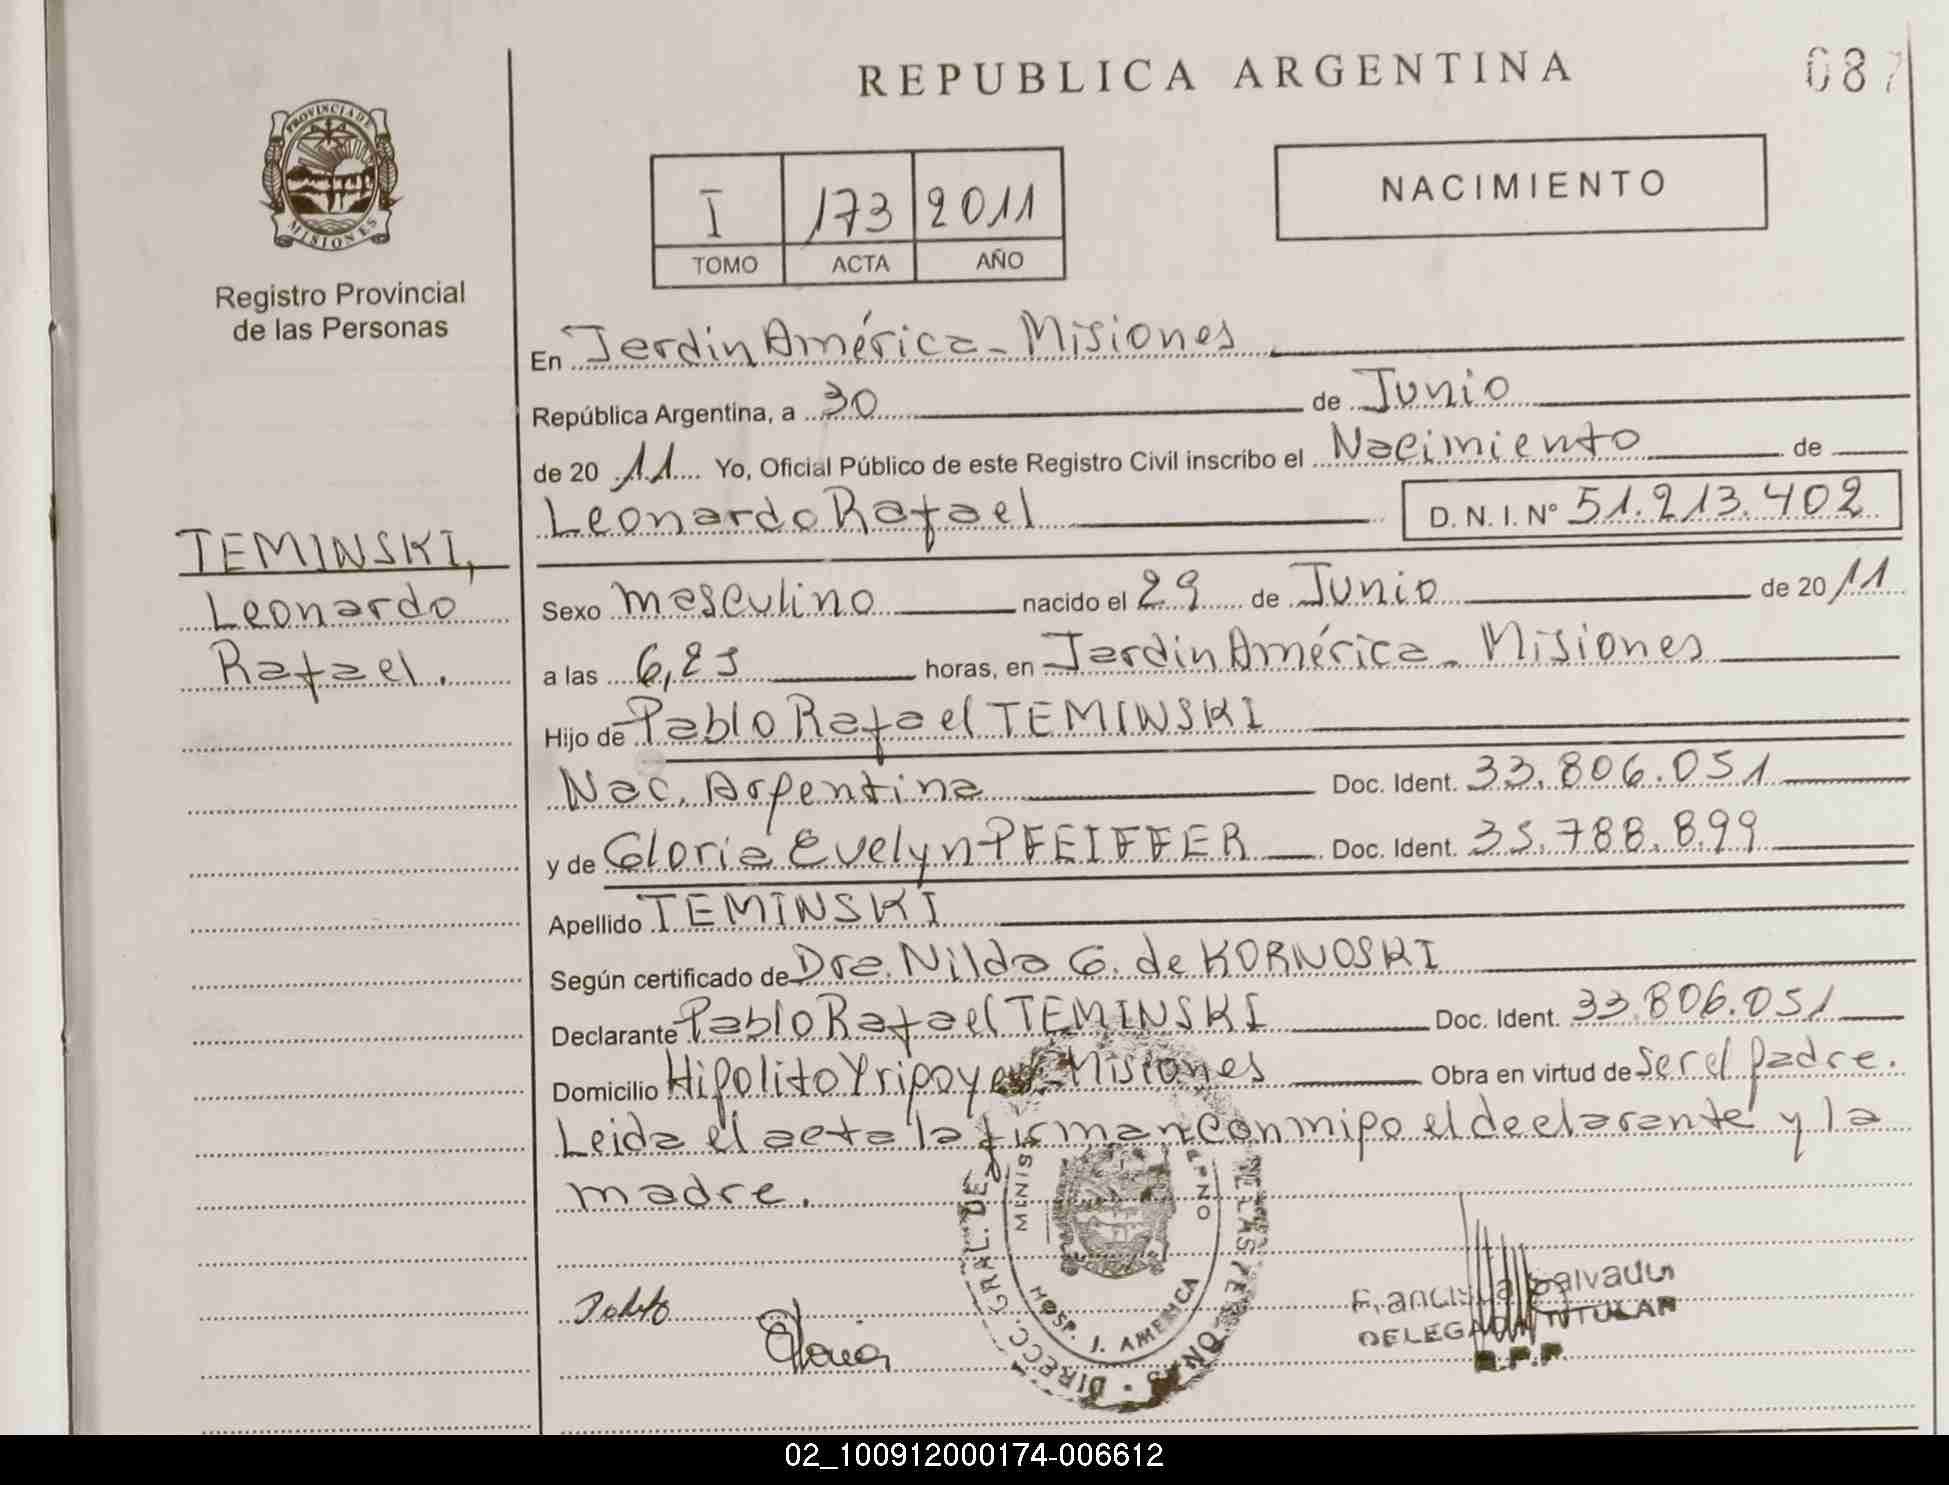 REPUBLICA ARGENTINA
087
PROVINCIA DE
MISIONES
Registro Provincial
de las Personas
I 173 2011
TOMO ACTA AÑO
NACIMIENTO
En Jardin América - Misiones
República Argentina, a 30 de Junio
de 20 11 Yo, Oficial Público de este Registro Civil inscribo el Nacimiento de
Leonardo Rafael D. N. I. N° 51.213.402
TEMINSKI,
Leonardo
Rafael.
Sexo masculino nacido el 29 de Junio de 20 11
a las 6,25 horas, en Jardin América - Misiones
Hijo de Pablo Rafael TEMINSKI
Nac. Argentina Doc. Ident. 33.806.051
y de Gloria Evelyn PFEIFFER Doc. Ident. 35.788.899
Apellido TEMINSKI
Según certificado de Dra. Nilda G. de KORNOSKI
Declarante Pablo Rafael TEMINSKI Doc. Ident. 33.806.051
Domicilio Hipolito Yrigoyen - Misiones Obra en virtud de Ser el padre.
Leida el acta la firman conmigo el declarante y la
madre.
DIRECC. GRAL. DE LAS PERSONAS
HOSP. J. AMERICA
Gloria
Francisca Salvador
DELEGADA TITULAR
R.P.P.
02_100912000174-006612